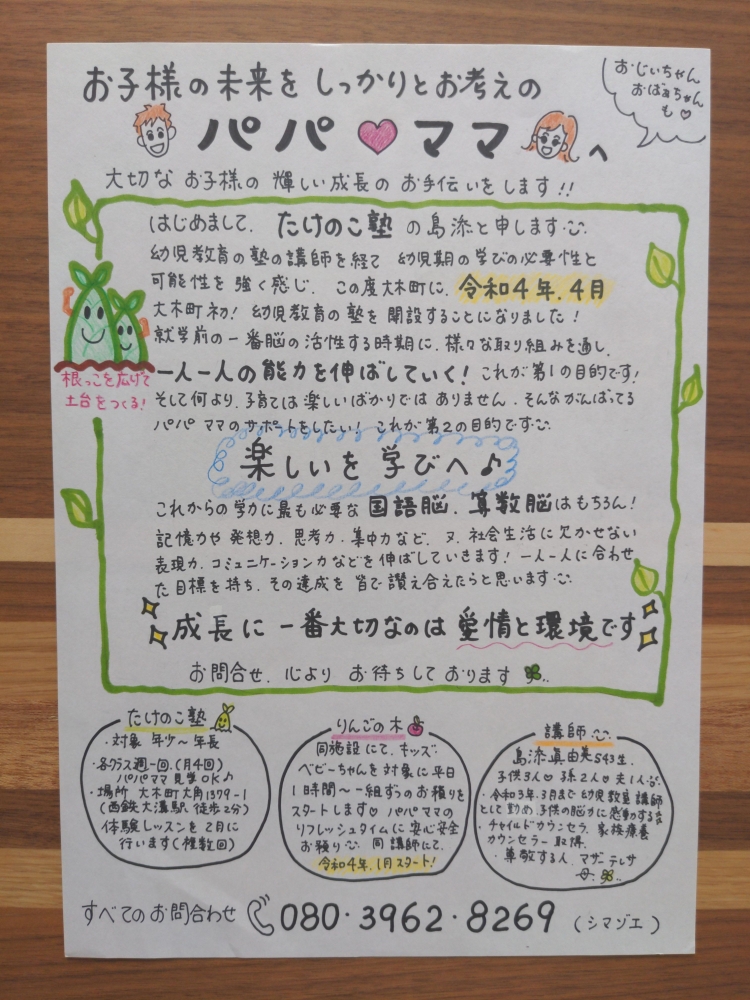 お子様の未来をしっかりとお考えの
おじいちゃん
おばあちゃん
も♡
パパ♥ママへ
大切なお子様の輝しい成長のお手伝いをします!!
はじめまして、たけのこ塾の島添と申します
幼児教育の塾の講師を経て 幼児期の学びの必要性と
可能性を強く感じ、この度大木町に、令和4年.4月
大木町初!幼児教育の塾を開設することになりました!
就学前の一番脳の活性する時期に、様々な取り組みを通し、
一人一人の能力を伸ばしていく!これが第1の目的です!
そして何より、子育ては楽しいばかりではありません、そんながんばってる
パパ ママのサポートをしたい!これが第2の目的です
根っこを広げて
土台をつくる!
楽しいを学びへ♪
これからの学力に最も必要な国語脳、算数脳はもちろん!
記憶力や発想力、思考力・集中力など、又、社会生活に欠かせない
表現力、コミュニケーション力などを伸ばしていきます!一人一人に合わせ
た目標を持ち、その達成を皆で讃え合えたらと思います
成長に一番大切なのは愛情と環境です
お問合せ、心よりお待ちしております
たけのこ塾
・対象 年少〜年長
・各クラス週一回、(月4回)
パパママ見学OK♪
・場所 大木町大角1379-1
(西鉄大溝駅、徒歩2分)
体験レッスンを2月に
行います(複数回)
りんごの木
同施設にて、キッズ・
ベビーちゃんを対象に平日
1時間〜一組ずつのお預りを
スタートします♡パパママの
リフレッシュタイムに安心安全
お預り 同講師にて、
令和4年、1月スタート!
講師
島添眞由美S43生、
子供3人♡孫2人♡夫1人
・令和3年、3月まで幼児教室講師
として勤め、子供の脳力に感動する
・チャイルドカウンセラー、家族療養
カウンセラー取得、
・尊敬する人 マザーテレサ
すべてのお問合わせ 080・3962・8269 (シマゾエ)